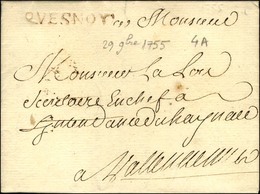 QVESNOY
A Monsieur
29 9bre 1755 4A
Monsieur La Lou
Secretaire En chef a
Lintendance du haynault
a Valenciennes